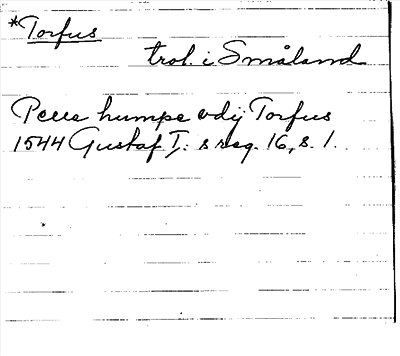 *Torfus
trol. i Småland
Peer humpe vdij Torfus
1544 Gustaf I: s reg. 16, s. 1.